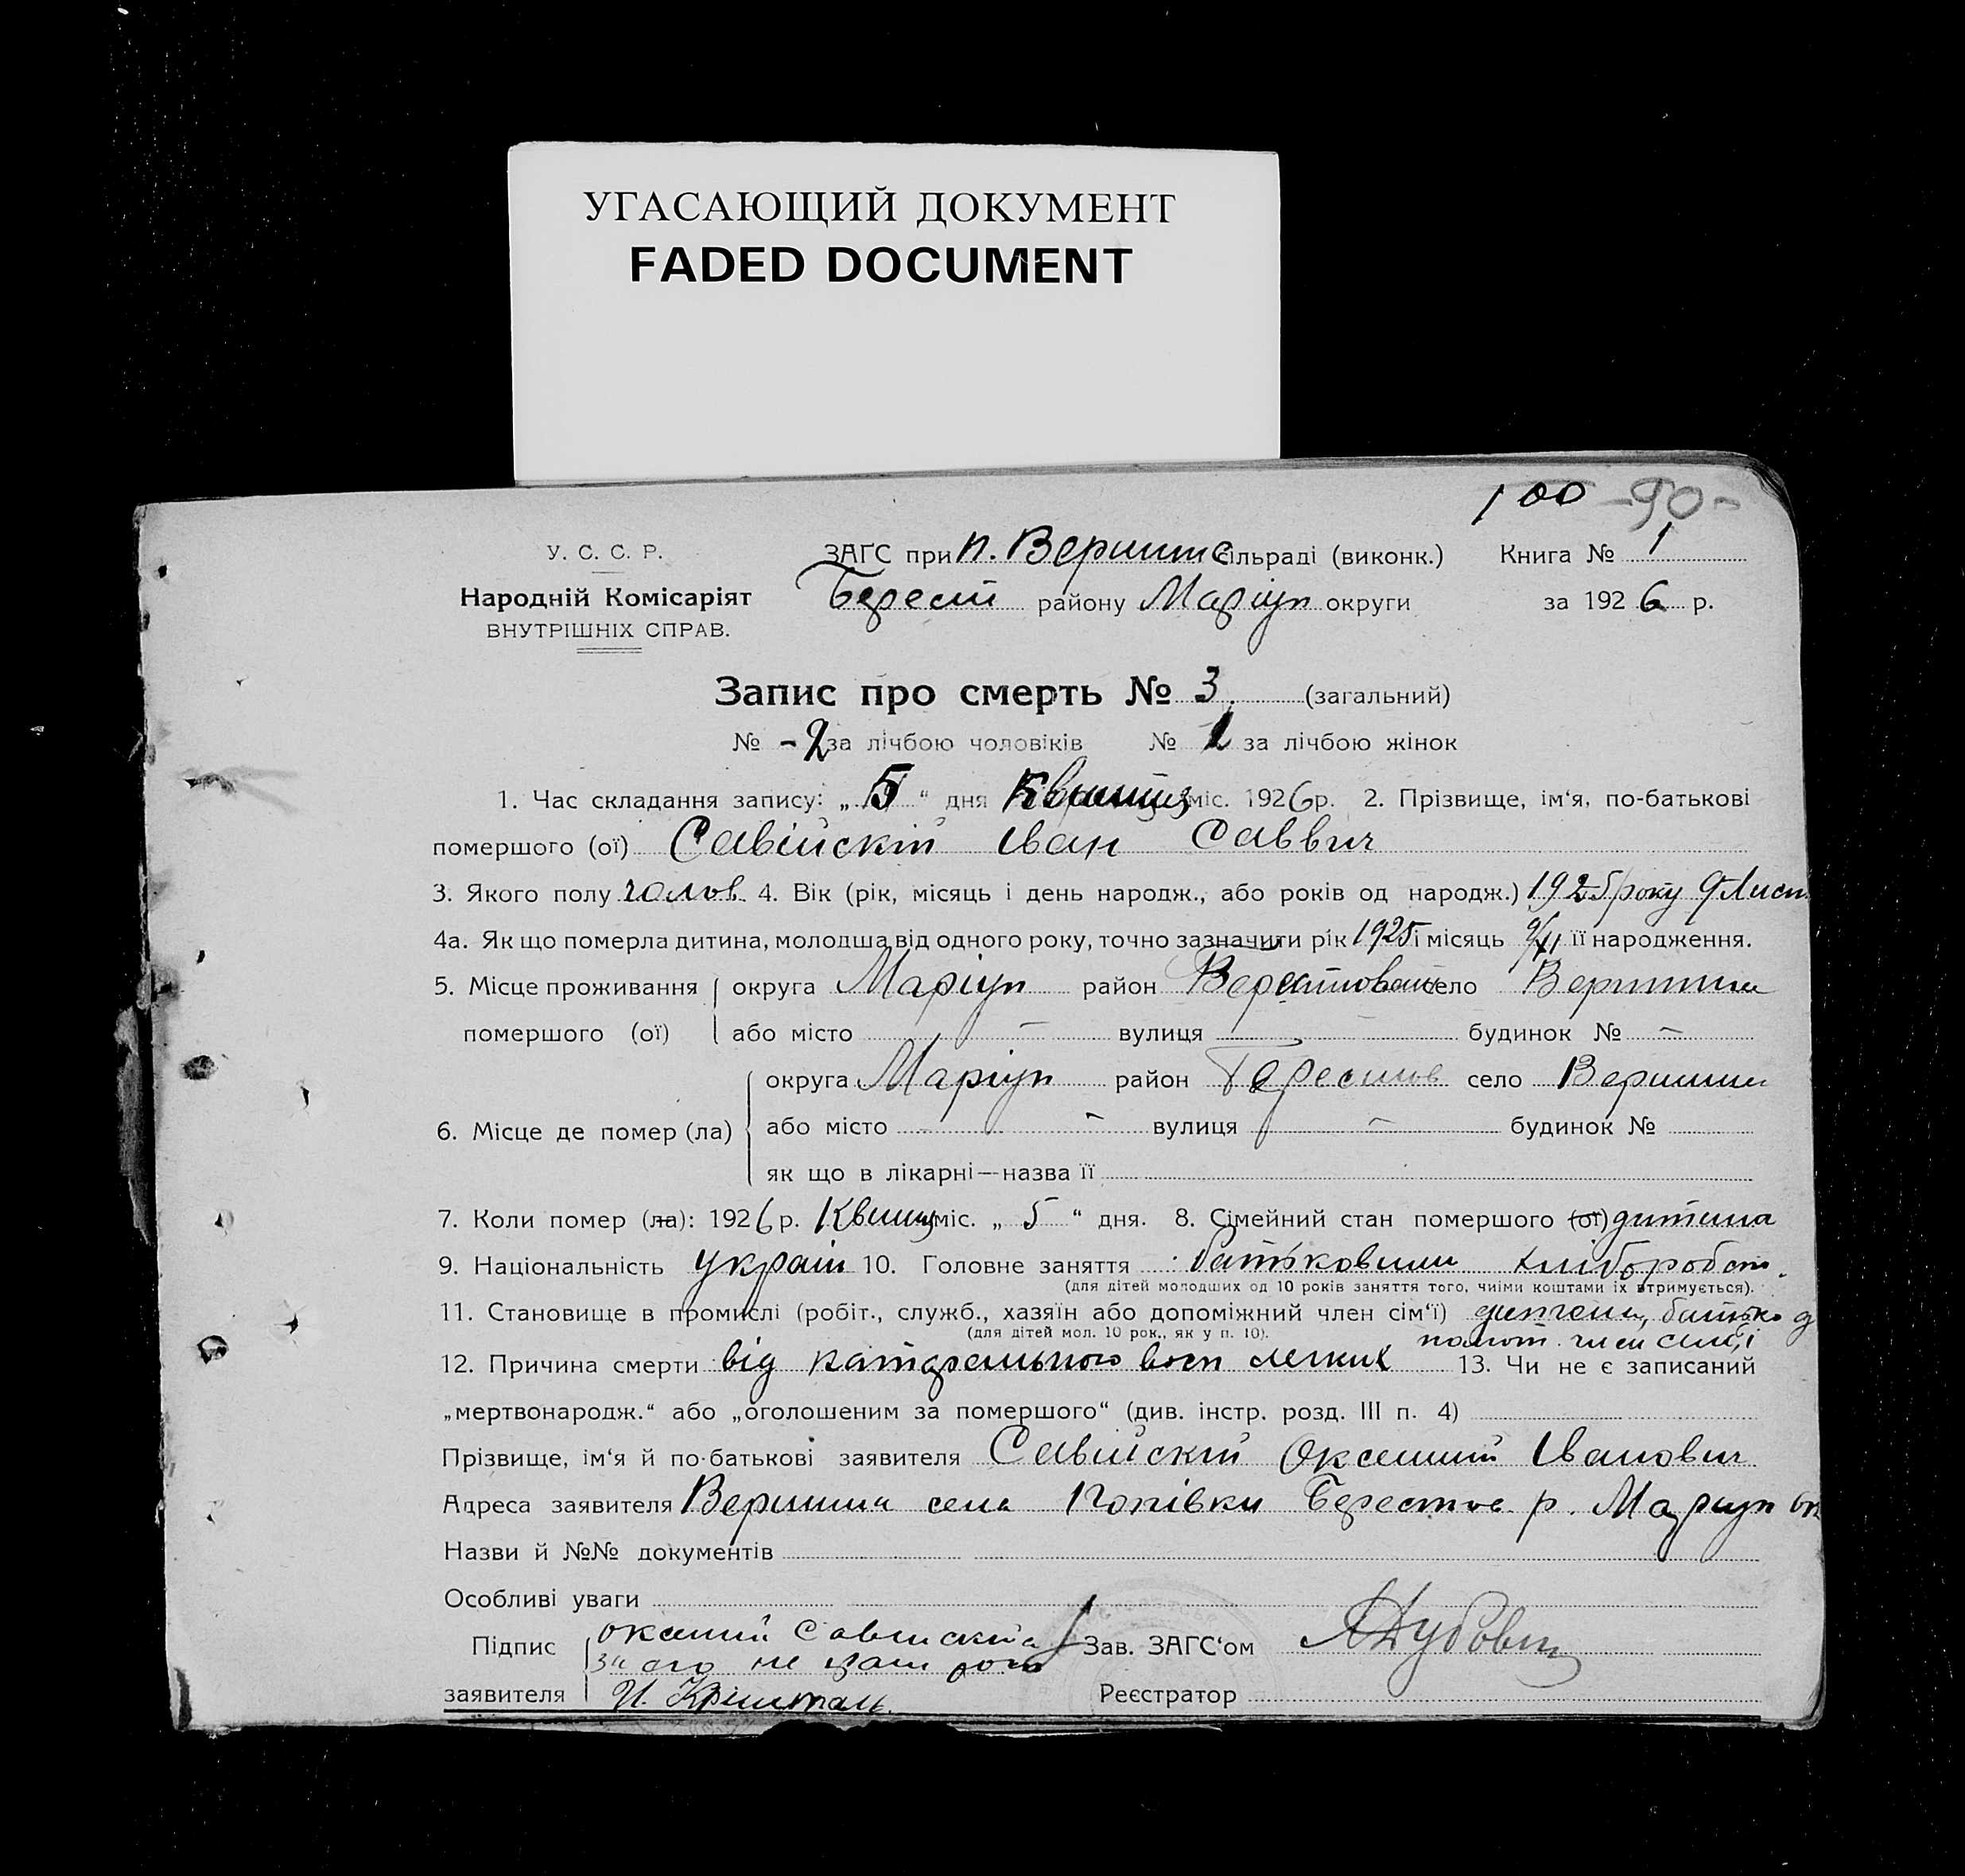 УГАСАЮЩИЙ ДОКУМЕНТ
FADED DOCUMENT
100 -90-
У. С. С. Р.
Народній Комісаріят
ВНУТРІШНІХ СПРАВ.
ЗАҐС при п. Вершинс сільраді (виконк.) Книга № 1
Берест району Маріуп округи за 1926 р.
Запис про смерть № 3. (загальний)
№ -2 за лічбою чоловіків № 1 за лічбою жінок
1. Час складання запису: „5“ дня Квітня міс. 1926 р. 2. Прізвище, ім‘я, по-батькові
помершого (ої) Савійскій Іван Саввич
3. Якого полу чолов. 4. Вік (рік, місяць і день народж., або років од народж.) 1925 року 9 Лист
4а. Як що померла дитина, молодша від одного року, точно зазначити рік 1925 і місяць 9/XI її народження.
5. Місце проживання помершого (ої) округа Маріуп район село Вершина
або місто — вулиця — будинок № —
6. Місце де помер (ла) округа Маріуп район Берестов село Вершини
або місто — вулиця — будинок №
як що в лікарні—назва її
7. Коли помер (ла): 1926 р. Квітня міс. „5“ дня. 8. Сімейний стан помершого (ої) дитина
9. Національність україн 10. Головне заняття батьковими хлібороб
(для дітей молодших од 10 років заняття того, чиїми коштами їх втримується).
11. Становище в промислі (робіт., служб., хазяїн або допоміжний член сім‘ї) батько
(для дітей мол. 10 рок., як у п. 10). член сімʼї
12. Причина смерти від катарального восп легких 13. Чи не є записаний
„мертвонародж.“ або „оголошеним за помершого“ (див. інстр. розд. III п. 4)
Прізвище, ім‘я й по-батькові заявителя Савійскій Оксентий Іванович
Адреса заявителя Вершина села Попівки Берестов р. Маріуп ок
Назви й №№ документів
Особливі уваги
Підпис заявителя Савійский
за его не
И. Кришталь.
Зав. ЗАҐС‘ом АДубовик
Реєстратор